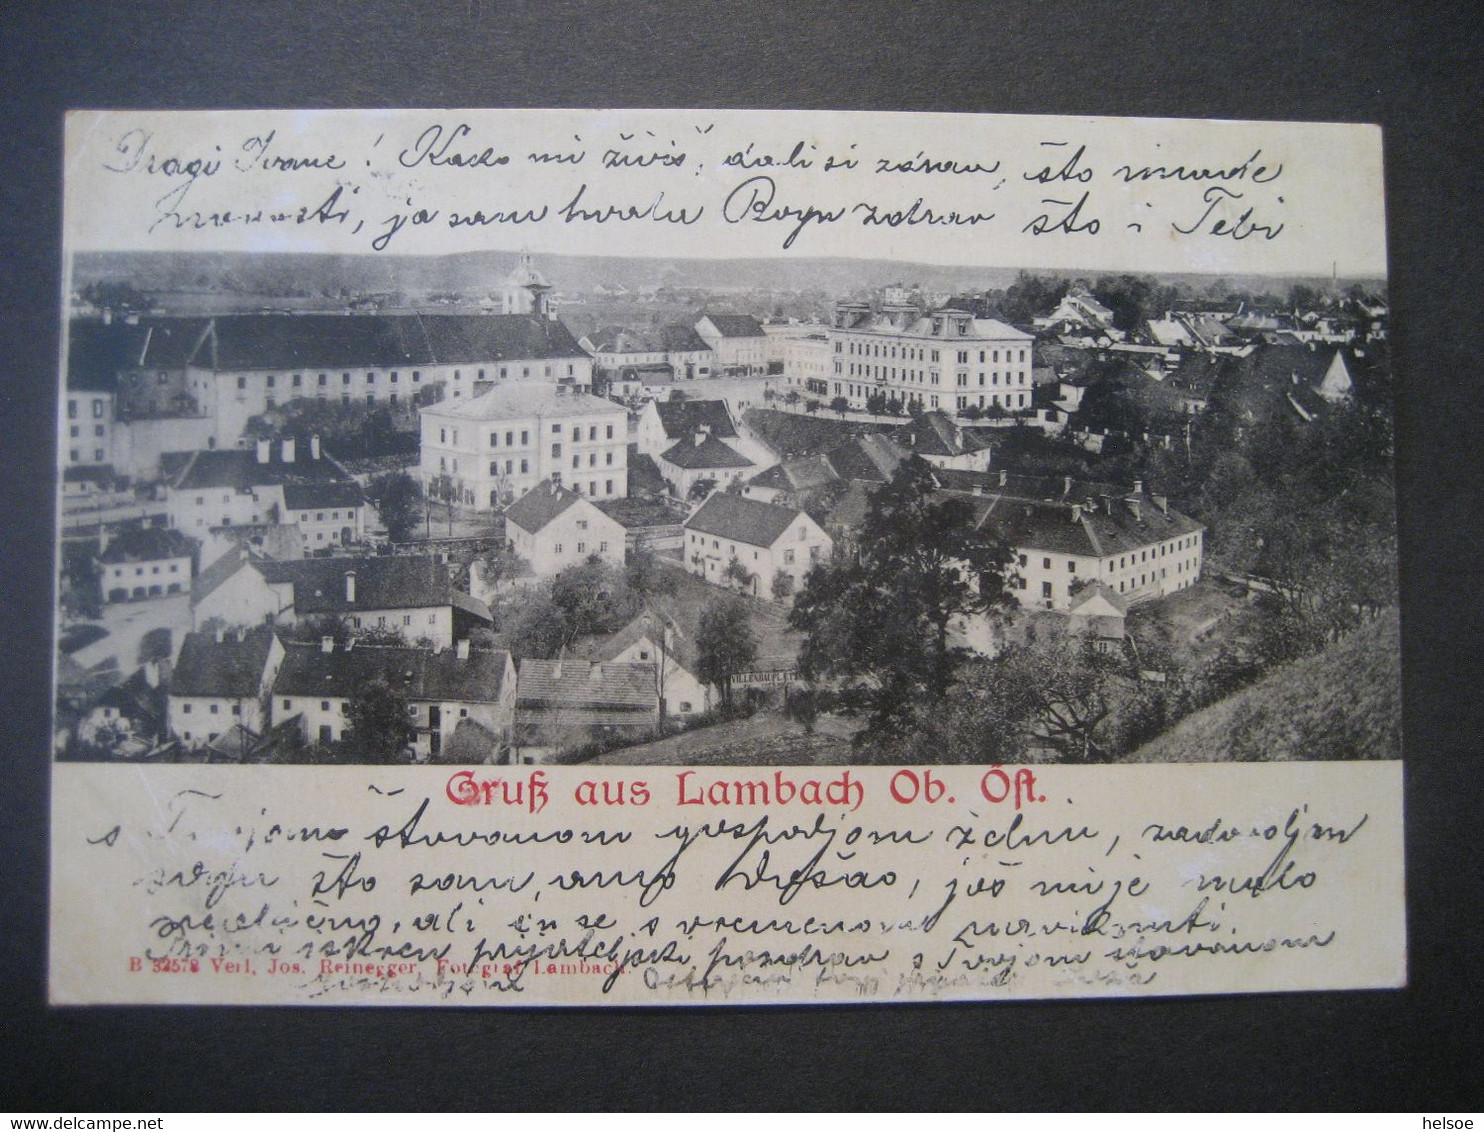 Dragi Ivane! Kako mi živiš, dali si zdrav, što imade
novosti, ja sam hvala Bogu zdrav što i Tebi
VILLENBAUPLATZ
Gruß aus Lambach Ob. Öst.
s Tvojom štovanom gospodjom želim, zadovoljan
što sam amo došao, još mi je malo
ali ću se s vremenom
iskren prijateljski pozdrav s Tvojom štovanom
B 32578 Verl. Jos. Reinegger, Fotograf Lambach.
gospodjom Ostajem Tvoj